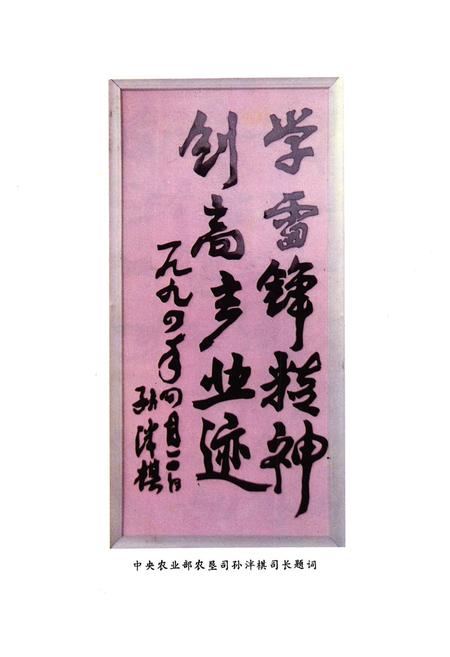 学雷锋精神
创高产业迹
一九九四年四月二日
孙泮棋
中央农业部农垦司孙泮棋司长题词